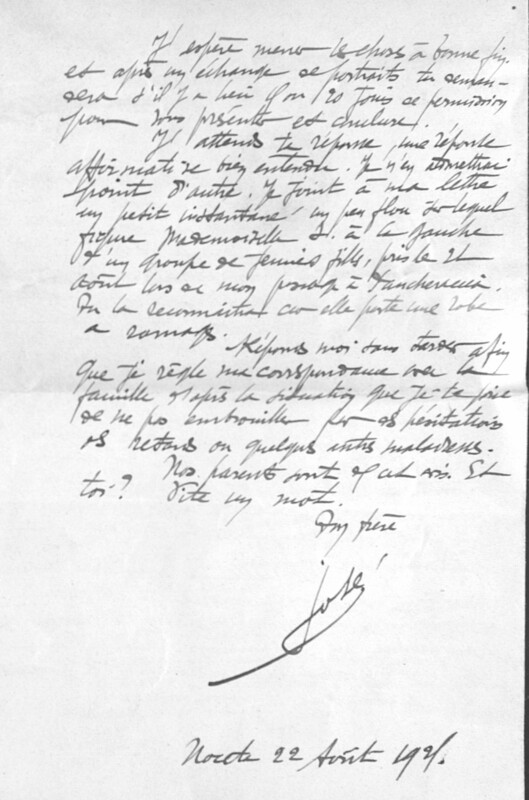 J'espère mener les choses à bonne fin,
et après un échange de portraits tu deman-
deras s'il y a lieu 15 ou 20 jours de permission
pour nous présenter et conclure.
J'attends ta réponse, une réponse
affirmative bien entendu. Je n'en admettrai
point d'autre. Je joint à ma lettre
un petit instantané un peu flou sur lequel
figure Mademoiselle à la gauche
d'un groupe de jeunes filles, pris le 21
août lors de mon passage à
Tu la reconnaitras car elle porte une robe
à ramages.
Réponds moi sans tarder afin
que je règle ma correspondance avec la
famille d'après la situation que je te prie
de ne pas embrouiller par des hésitations
des retards ou quelques autres maladresses.
Nos parents sont de cet avis. Et
toi? Vite un mot.
Ton frère
José
22 Août 192